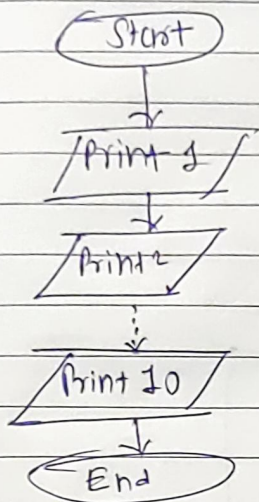 Start
Print 1
Print 2
Print 10
End